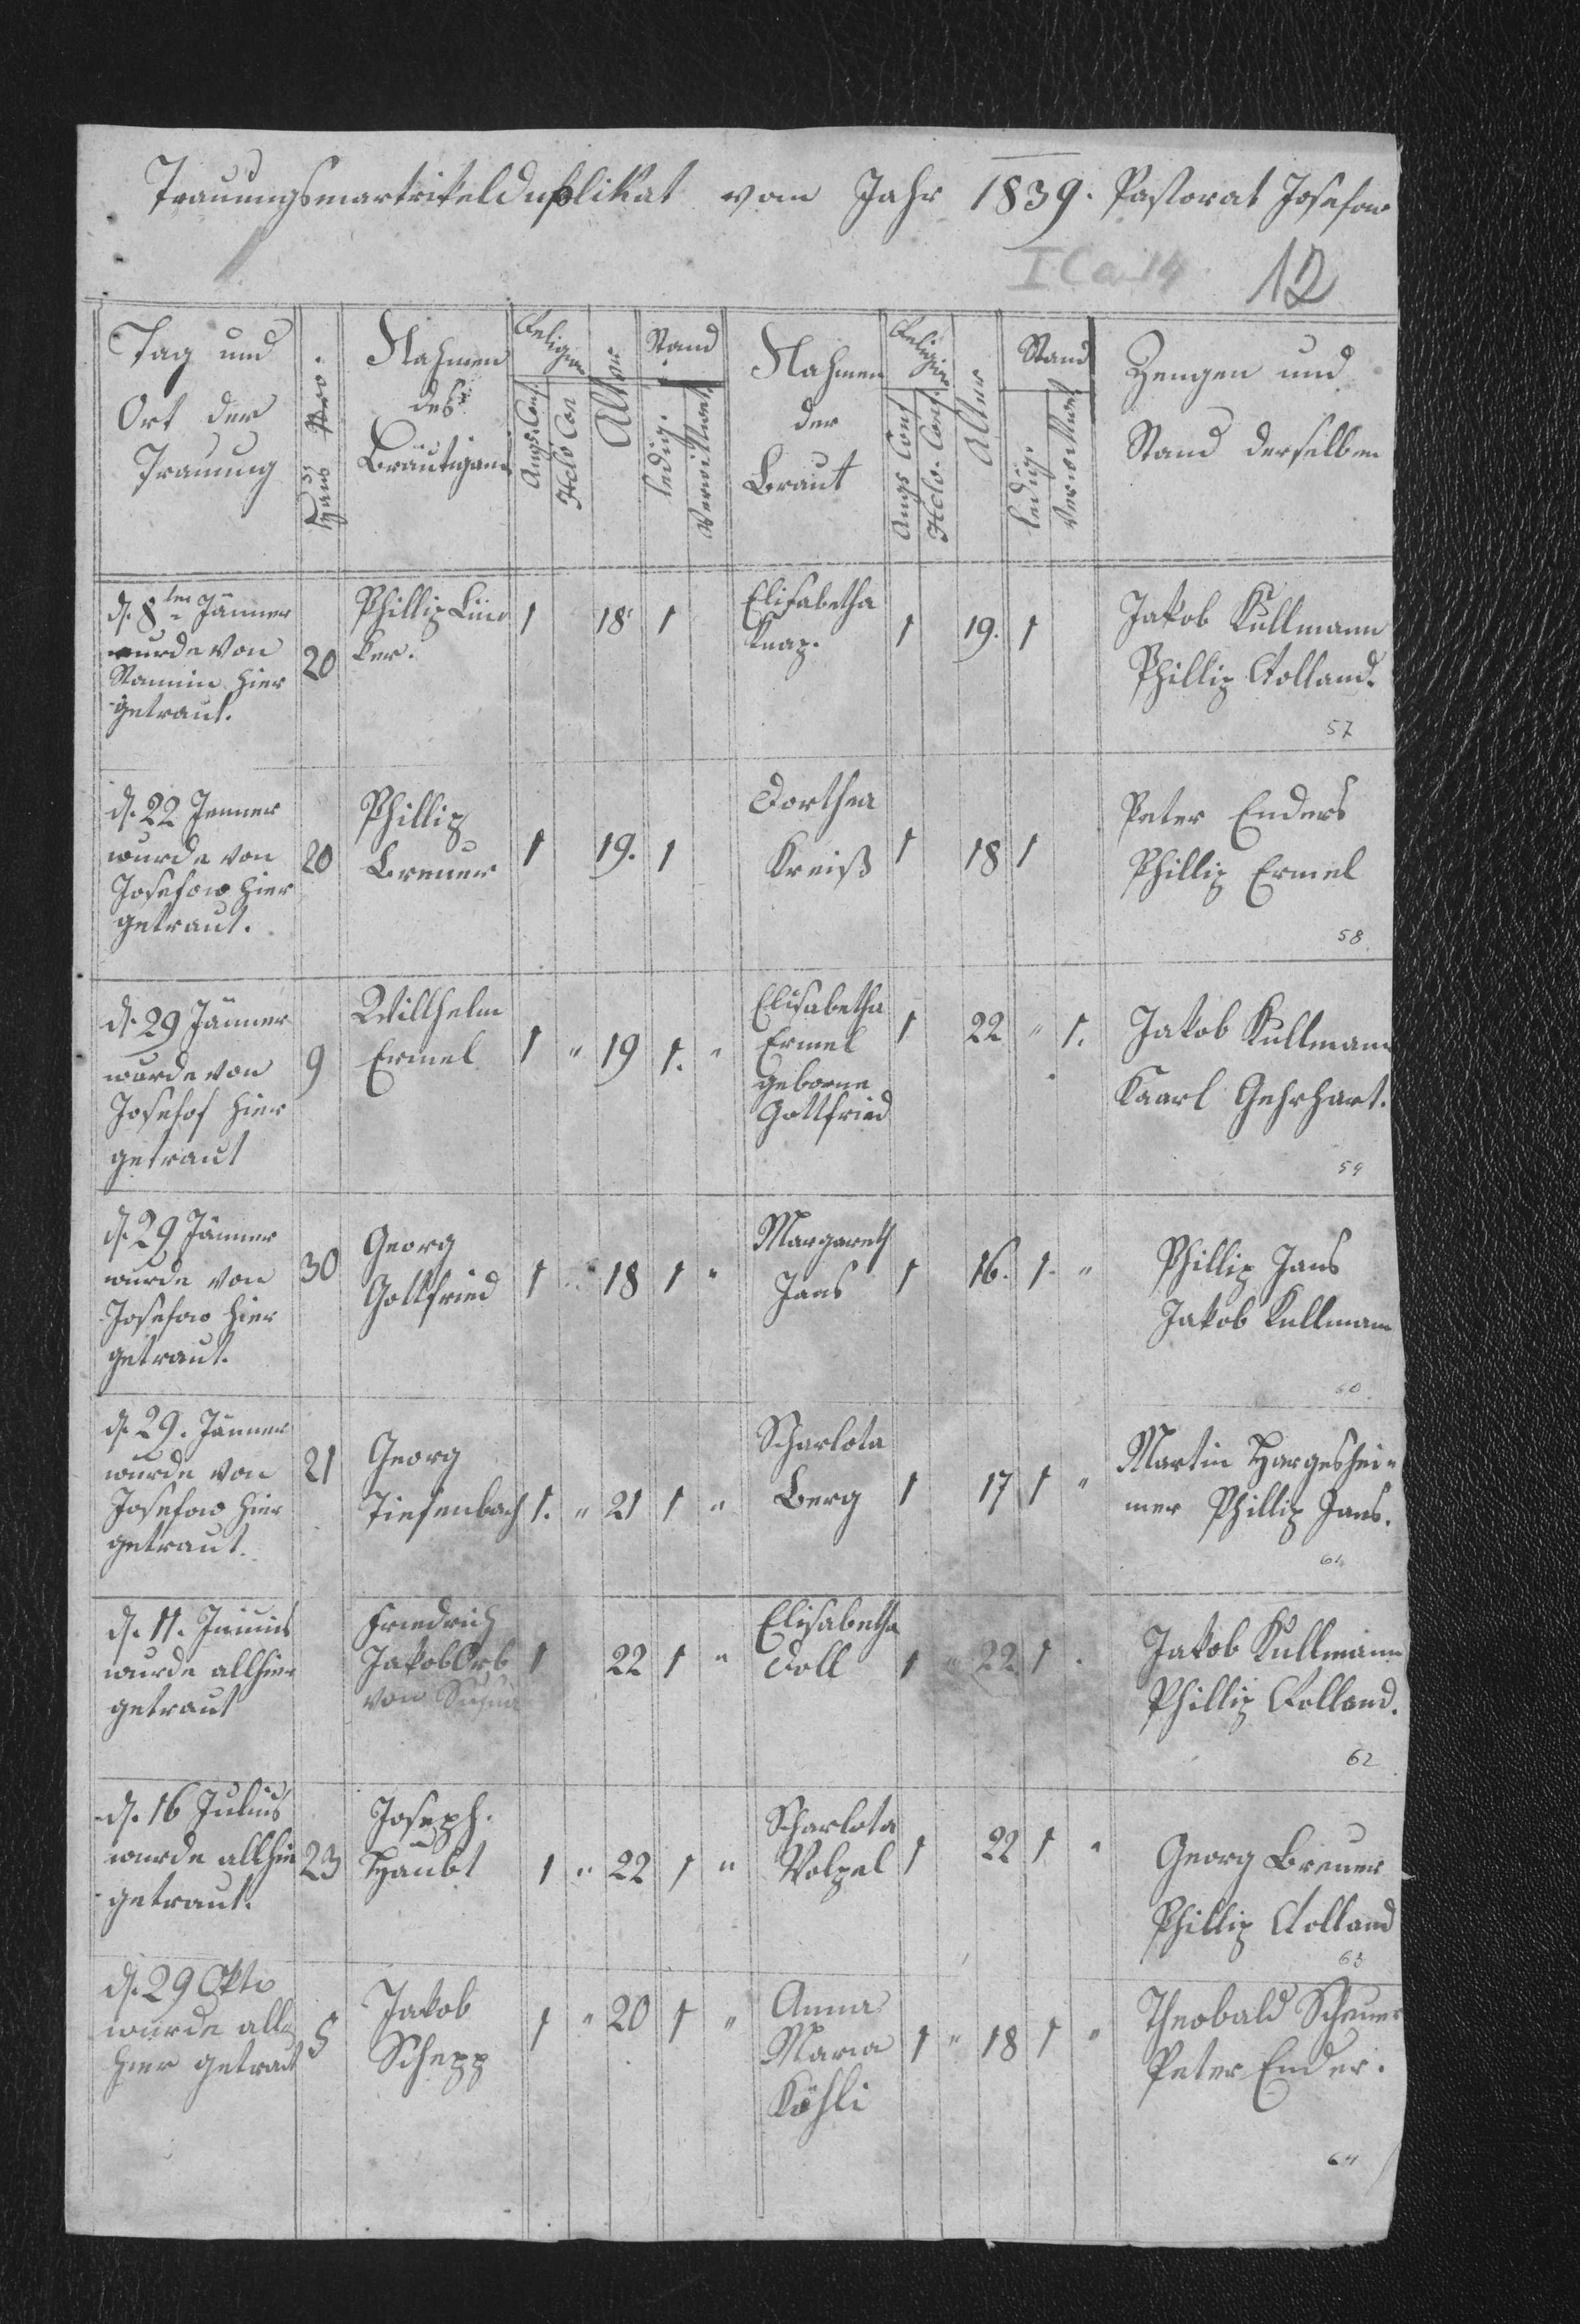 Trauungsmartrikelduplikat vom Jahr 1839. Pastorat Josefow
I C a 14
12
Tag und
Ort der
Trauung
Haus Nro.
Nahmen
des
Bräutigams
Religion
Augs. Conf.
Helv. Con
Alter
Stand
ledig.
Verwittwet
Nahmen
der
Braut
Religion
Augs Conf
Helv. Conf.
Alter
Stand
ledig.
Verwittwet
Zeugen und
Stand derselben
d. 8ten Jänner
wurde von
Stamin hier
getraut.
20
Phillip Lin
ker.
1 18 1
Elisabetha
Knap.
1 19. 1
Jakob Kullmann
Phillip Rolland.
57
d. 22 Jenner
wurde von
Josefow hier
getraut.
20
Phillip
Breuer
1 19. 1
Dorthea
Kreiß
1 18 1
Peter Enders
Phillip Ermel
58
d. 29 Jänner
wurde von
Josefof hier
getraut
9
Willhelm
Ermel
1 " 19 1. "
Elisabetha
Ermel
geborne
Gottfried
1 22 " 1.
Jakob Kullmann
Kaarl Gehrhart.
59
d. 29 Jänner
wurde von
Josefow hier
getraut.
30
Georg
Gottfried
1 " 18 1 "
Margareth
Jans
1 16. 1. "
Phillip Jans
Jakob Kullmann
60
d. 29. Jänner
wurde von
Josefow hier
getraut.
21
Georg
Tiefenbach
1. " 21 1 "
Scharlota
Berg
1 17 1 "
Martin Hargeshei=
mer Phillip Jans.
61
d. 11. Junius
wurde allhier
getraut
Friedrich
Jakob Orb
von
1 22 1 "
Elisabetha
Doll
1 " 22 1
Jakob Kullmann
Phillip Rolland.
62
d. 16 Julius
wurde allhie
getraut.
23
Joseph.
Haubt
1 " 22 1 "
Scharlota
Volpel
1 22 1 "
Georg Breuer
Phillip Rolland
63
d. 29 Okto
wurde all=
hier getraut
5
Jakob
Schepp
1 " 20 1 "
Anna
Maria
Köhli
1 " 18 1 "
Theobald Scheuer
Peter Ender.
64